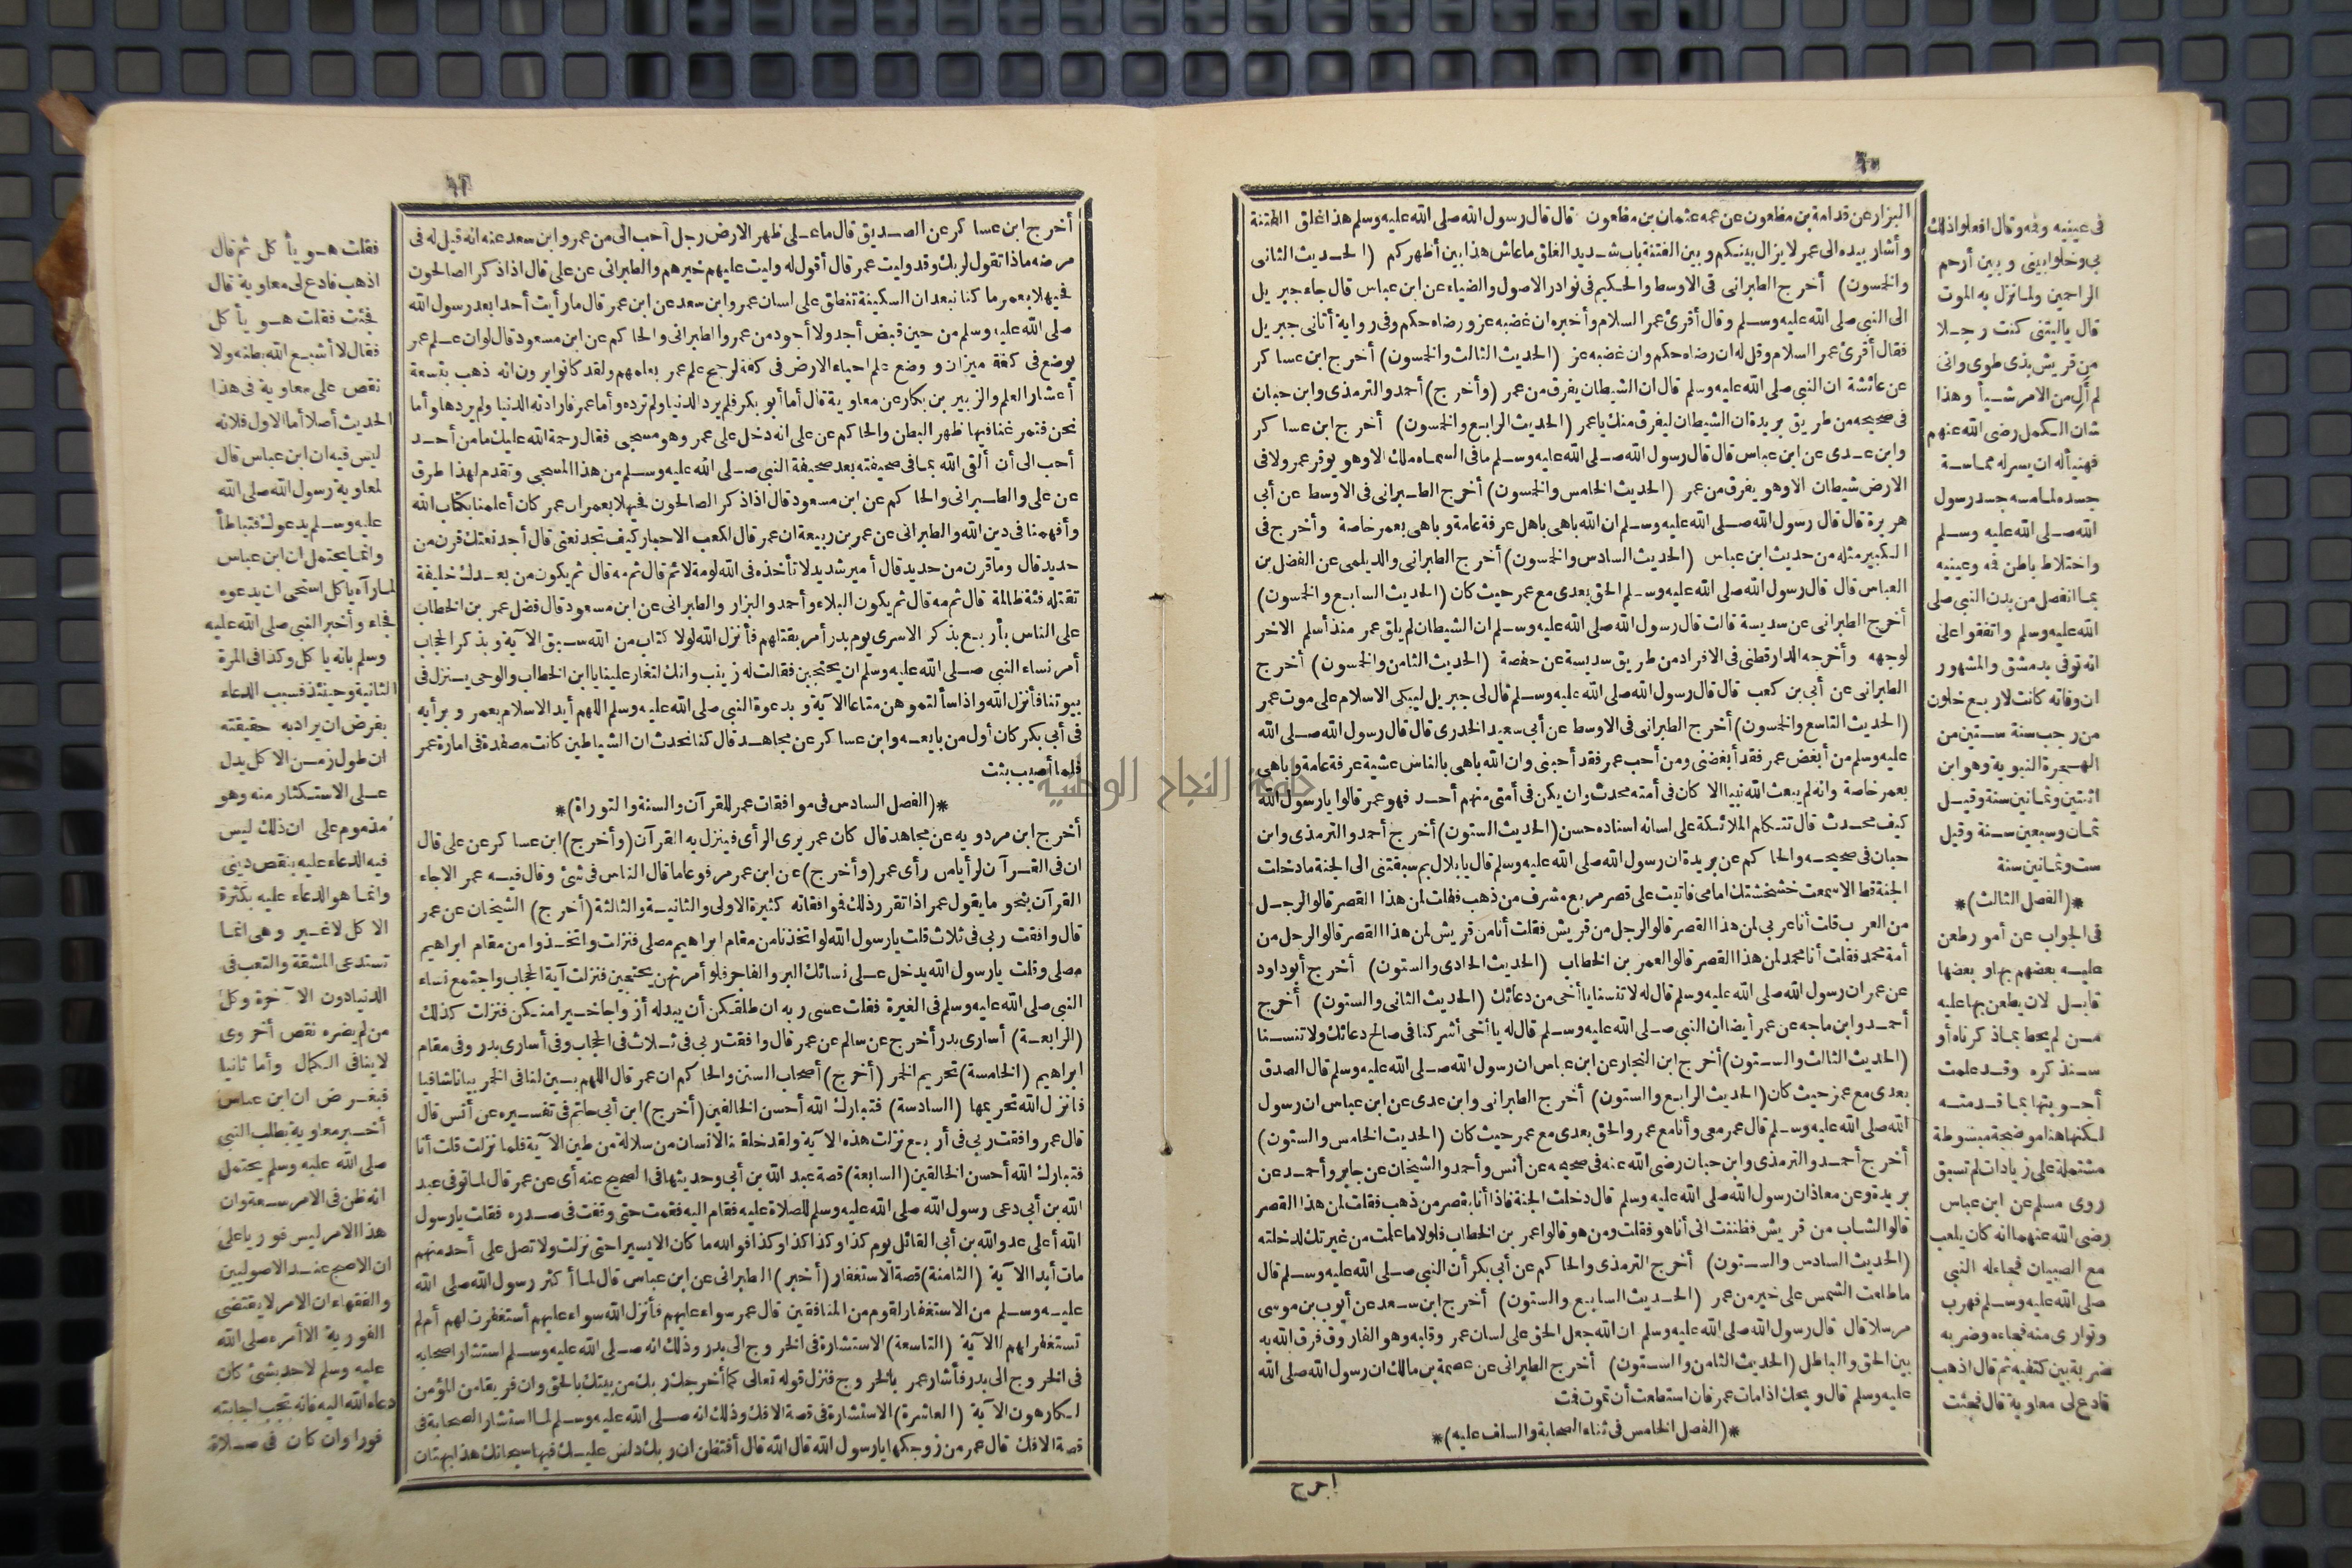 ٦٠
البزار عن قدامة بن مظعون عن عمه عثمان بن مظعون قال قال رسول الله صلى الله عليه وسلم هذا غلق الفتنة
وأشار بيده الى عمر لا يزال بينكم وبين الفتنة باب شديد الغلق ما عاش هذا بين أظهركم (الحديث الثانى
والخمسون) أخرج الطبرانى فى الاوسط والحكيم فى نوادر الاصول والضياء عن ابن عباس قال جاء جبريل
الى النبى صلى الله عليه وسلم وقال أقرئ عمر السلام وأخبره ان غضبه عز ورضاه حكم وفى رواية أتانى جبريل
فقال أقرئ عمر السلام وقل له ان رضاه حكم وان غضبه عز (الحديث الثالث والخمسون) أخرج ابن عساكر
عن عائشة ان النبى صلى الله عليه وسلم قال ان الشيطان يفرق من عمر (وأخرج) أحمد والترمذى وابن حبان
فى صحيحه من طريق بريدة ان الشيطان ليفرق منك يا عمر (الحديث الرابع والخمسون) أخرج ابن عساكر
وابن عدى عن ابن عباس قال قال رسول الله صلى الله عليه وسلم ما فى السماء ملك الا وهو يوقر عمر ولا فى
الارض شيطان الا وهو يفرق من عمر (الحديث الخامس والخمسون) أخرج الطبرانى فى الاوسط عن أبى
هريرة قال قال رسول الله صلى الله عليه وسلم ان الله باهى باهل عرفة عامة وباهى بعمر خاصة وأخرج فى
الكبير مثله من حديث ابن عباس (الحديث السادس والخمسون) أخرج الطبرانى والديلمى عن الفضل بن
العباس قال قال رسول الله صلى الله عليه وسلم الحق بعدى مع عمر حيث كان (الحديث السابع والخمسون)
أخرج الطبرانى عن سديسة قالت قال رسول الله صلى الله عليه وسلم ان الشيطان لم يلق عمر منذ أسلم الا خر
لوجهه وأخرجه الدارقطنى فى الافراد من طريق سديسة عن حفصة (الحديث الثامن والخمسون) أخرج
الطبرانى عن أبى بن كعب قال قال رسول الله صلى الله عليه وسلم قال لى جبريل ليبكى الاسلام على موت عمر
(الحديث التاسع والخمسون) أخرج الطبرانى فى الاوسط عن أبى سعيد الخدرى قال قال رسول الله صلى الله
عليه وسلم من أبغض عمر فقد أبغضنى ومن أحب عمر فقد أحبنى وان الله باهى بالناس عشية عرفة عامة وباهى
بعمر خاصة وانه لم يبعث الله نبيا الا كان فى أمته محدث وان يكن فى أمتى منهم أحد فهو عمر قالوا يا رسول الله
كيف محدث قال تتكلم الملائكة على لسانه اسناده حسن (الحديث الستون) أخرج أحمد والترمذى وابن
حبان فى صحيحه والحاكم عن بريدة ان رسول الله صلى الله عليه وسلم قال يا بلال بم سبقتنى الى الجنة ما دخلت
الجنة قط الا سمعت خشخشتك امامى فاتيت على قصر مربع مشرف من ذهب فقلت لمن هذا القصر قالوا لرجل
من العرب قلت أنا عربى لمن هذا القصر قالوا لرجل من قريش فقلت أنا من قريش لمن هذا القصر قالوا لرجل من
أمة محمد فقلت أنا محمد لمن هذا القصر قالوا لعمر بن الخطاب (الحديث الحادى والستون) أخرج أبو داود
عن عمر ان رسول الله صلى الله عليه وسلم قال له لا تنسنا يا أخى من دعائك (الحديث الثانى والستون) أخرج
أحمد وابن ماجه عن عمر أيضا ان النبى صلى الله عليه وسلم قال له يا أخى أشركنا فى صالح دعائك ولا تنسنا
(الحديث الثالث والستون) أخرج ابن النجار عن ابن عباس ان رسول الله صلى الله عليه وسلم قال الصدق
بعدى مع عمر حيث كان (الحديث الرابع والستون) أخرج الطبرانى وابن عدى عن ابن عباس ان رسول
الله صلى الله عليه وسلم قال عمر معى وأنا مع عمر والحق بعدى مع عمر حيث كان (الحديث الخامس والستون)
أخرج أحمد والترمذى وابن حبان رضى الله عنه فى صحيحه عن أنس وأحمد والشيخان عن جابر وأحمد عن
بريدة وعن معاذ ان رسول الله صلى الله عليه وسلم قال دخلت الجنة فاذا أنا بقصر من ذهب فقلت لمن هذا القصر
قالوا لشاب من قريش فظننت انى أنا هو فقلت ومن هو قالوا عمر بن الخطاب فلولا ما علمت من غيرتك لدخلته
(الحديث السادس والستون) أخرج الترمذى والحاكم عن أبى بكر أن النبى صلى الله عليه وسلم قال
ما طلعت الشمس على خير من عمر (الحديث السابع والستون) أخرج ابن سعد عن أيوب بن موسى
مرسلا قال قال رسول الله صلى الله عليه وسلم ان الله جعل الحق على لسان عمر وقلبه وهو الفاروق فرق الله به
بين الحق والباطل (الحديث الثامن والستون) أخرج الطبرانى عن عصمة بن مالك ان رسول الله صلى الله
عليه وسلم قال ويحك اذا مات عمر فان استطعت أن تموت فمت
*(الفصل الخامس فى ثناء الصحابة والسلف عليه)*
اخرج
فى عينيه وفه وقال افعلوا ذلك
بى وخلوا بينى وبين أرحم
الراحمين ولما نزل به الموت
قال يا ليتنى كنت رجلا
من قريش بذى طوى وانى
لم أل من الامر شيأ وهذا
شان الكمل رضى الله عنهم
فهنيأ له ان يسر له مماسة
جسده لما مسه جسد رسول
الله صلى الله عليه وسلم
واختلاط باطن فه وعينيه
بما انفصل من بدن النبى صلى
الله عليه وسلم واتفقوا على
انه توفى بدمشق والمشهور
ان وفاته كانت لاربع خلون
من رجب سنة ستين من
الهجرة النبوية وهو ابن
اثنتين وثمانين سنة وقيل
ثمان وسبعين سنة وقيل
ست وثمانين سنة
*(الفصل الثالث)*
فى الجواب عن أمور طعن
عليه بعضهم بها وبعضها
قابل لان يطعن بها عليه
من لم يحط بما ذكرناه أو
سنذكره وقد علمت
أجوبتها بما قدمته
لكنها هنا موضحة مبسوطة
مشتملة على زيادات لم تسبق
روى مسلم عن ابن عباس
رضى الله عنهما انه كان يلعب
مع الصبيان فجاء له النبى
صلى الله عليه وسلم فهرب
وتوارى منه فجاءه وضربه
ضربة بين كتفيه ثم قال اذهب
فادع لى معاوية قال فجئت
أخرج ابن عساكر عن الصديق قال ما على ظهر الارض رجل أحب الى من عمر وابن سعد عنه انه قيل له فى
مرضه ماذا تقول لربك وقد وليت عمر قال أقول له وليت عليهم خيرهم والطبرانى عن على قال اذا ذكر الصالحون
فحيهلا بعمر ما كنا نبعد ان السكينة تنطق على لسان عمر وابن سعد عن ابن عمر قال ما رأيت أحدا بعد رسول الله
صلى الله عليه وسلم من حين قبض أجد ولا أجود من عمر والطبرانى والحاكم عن ابن مسعود قال لو ان علم عمر
يوضع فى كفة ميزان ووضع علم احياء الارض فى كفة لرجح علم عمر بعلمهم ولقد كانوا يرون انه ذهب بتسعة
أعشار العلم والزبير بن بكار عن معاوية قال أما أبو بكر فلم يرد الدنيا ولم ترده وأما عمر فارادته الدنيا ولم يردها وأما
نحن فتمرغنا فيها ظهر البطن والحاكم عن على انه دخل على عمر وهو مسجى فقال رحمة الله عليك ما من أحد
أحب الى أن ألقى الله بما فى صحيفته بعد صحيفة النبى صلى الله عليه وسلم من هذا المسجى وتقدم لهذا طرق
عن على والطبرانى والحاكم عن ابن مسعود قال اذا ذكر الصالحون فحيهلا بعمر ان عمر كان أعلمنا بكتاب الله
وأفهمنا فى دين الله والطبرانى عن عمر بن ربيعة ان عمر قال لكعب الاحبار كيف تجد نعتى قال أجد نعتك قرن من
حديد قال وما قرن من حديد قال أمير شديد لا تأخذه فى الله لومة لائم قال ثم مه قال ثم يكون من بعدك خليفة
تقتله فئة ظالمة قال ثم مه قال ثم يكون البلاء وأحمد والبزار والطبرانى عن ابن مسعود قال فضل عمر بن الخطاب
على الناس بأربع بذكر الاسرى يوم بدر أمر بقتلهم فأنزل الله لولا كتاب من الله سبق الآية وبذكر الحجاب
أمر نساء النبى صلى الله عليه وسلم ان يحتجبن فقالت له زينب وانك لتغار علينا يا ابن الخطاب والوحى ينزل فى
بيوتنا فأنزل الله واذا سألتموهن متاعا الآية وبدعوة النبى صلى الله عليه وسلم اللهم أيد الاسلام بعمر وبرأيه
فى أبى بكر كان أول من بايعه وابن عساكر عن مجاهد قال كنا نحدث ان الشياطين كانت مصفدة فى امارة عمر
فلما أصيب بثت
*(الفصل السادس فى موافقات عمر للقرآن والسنة والتوراة)*
أخرج ابن مردويه عن مجاهد قال كان عمر يرى الرأى فينزل به القرآن (وأخرج) ابن عساكر عن على قال
ان فى القرآن لرأيا من رأى عمر (وأخرج) عن ابن عمر مرفوعا ما قال الناس فى شئ وقال فيه عمر الا جاء
القرآن بنحو ما يقول عمر اذا تقرر ذلك فوافقاته كثيرة الاولى والثانية والثالثة (أخرج) الشيخان عن عمر
قال وافقت ربى فى ثلاث قلت يا رسول الله لو اتخذنا من مقام ابراهيم مصلى فنزلت واتخذوا من مقام ابراهيم
مصلى وقلت يا رسول الله يدخل على نسائك البر والفاجر فلو أمرتهن يحتجبن فنزلت آية الحجاب واجتمع نساء
النبى صلى الله عليه وسلم فى الغيرة فقلت عسى ربه ان طلقكن أن يبدله أزواجا خيرا منكن فنزلت كذلك
(الرابعة) أسارى بدر أخرج عن سالم عن عمر قال وافقت ربى فى ثلاث فى الحجاب وفى أسارى بدر وفى مقام
ابراهيم (الخامسة) تحريم الخمر (أخرج) أصحاب السنن والحاكم ان عمر قال اللهم بين لنا فى الخمر بيانا شافيا
فانزل الله تحريمها (السادسة) فتبارك الله أحسن الخالقين (أخرج) ابن أبى حاتم فى تفسيره عن أنس قال
قال عمر وافقت ربى فى أربع نزلت هذه الآية ولقد خلقنا الانسان من سلالة من طين الآية فلما نزلت قلت أنا
فتبارك الله أحسن الخالقين (السابعة) قصة عبد الله بن أبى وحديثها فى الصحيح عنه أى عن عمر قال لما توفى عبد
الله بن أبى دعى رسول الله صلى الله عليه وسلم للصلاة عليه فقام اليه فقمت حتى وقفت فى صدره فقلت يا رسول
الله أعلى عدو الله بن أبى القائل يوم كذا وكذا كذا وكذا فوالله ما كان الا يسيرا حتى نزلت ولا تصل على أحد منهم
مات أبدا الآية (الثامنة) قصة الاستغفار (أخبر) الطبرانى عن ابن عباس قال لما أكثر رسول الله صلى الله
عليه وسلم من الاستغفار لقوم من المنافقين قال عمر سواء عليهم فأنزل الله سواء عليهم أستغفرت لهم أم لم
تستغفر لهم الآية (التاسعة) الاستشارة فى الخروج الى بدر وذلك انه صلى الله عليه وسلم استشار اصحابه
فى الخروج الى بدر فأشار عمر بالخروج فنزل قوله تعالى كما أخرجك ربك من بيتك بالحق وان فريقا من المؤمنين
لكارهون الآية (العاشرة) الاستشارة فى قصة الافك وذلك انه صلى الله عليه وسلم لما استشار الصحابة فى
قصة الافك قال عمر من زوجكها يا رسول الله قال الله قال أفتظن ان ربك دلس عليك فيها سبحانك هذا بهتان
فقلت هو يأكل ثم قال
اذهب فادع لى معاوية قال
فجئت فقلت هو يأكل
فقال لا أشبع الله بطنه ولا
نقص على معاوية فى هذا
الحديث أصلا أما الاول فلانه
ليس فيه ان ابن عباس قال
لمعاوية رسول الله صلى الله
عليه وسلم يدعوك فتباطأ
وانما يحتمل ان ابن عباس
لما رآه يأكل استحى ان يدعوه
فجاء وأخبر النبى صلى الله عليه
وسلم بانه يأكل وكذا فى المرة
الثانية وحينئذ فسبب الدعاء
بفرض ان يراد به حقيقته
ان طول زمن الاكل يدل
على الاستكثار منه وهو
مذموم على ان ذلك ليس
فيه الدعاء عليه بنقص دينى
وانما هو الدعاء عليه بكثرة
الاكل لا غير وهى انما
تستدعى المشقة والتعب فى
الدنيا دون الآخرة وكل
من لم يضره نقص أخروى
لا ينافى الكمال وأما ثانيا
فبفرض ان ابن عباس
أخبر معاوية بطلب النبى
صلى الله عليه وسلم يحتمل
انه ظن فى الامر سعة وان
هذا الامر ليس فوريا على
ان الاصح عند الاصوليين
والفقهاء ان الامر لا يقتضى
الفورية الا أمره صلى الله
عليه وسلم لاحد بشئ كان
دعاء الله اليه فانه تجب اجابته
فورا وان كان فى صلاة
جامعة النجاح الوطنية